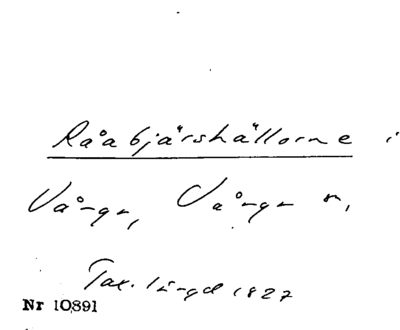 Rååbjärshällorne i
Vånga, Vånga sn,
Tax. längd 1827
Nr 10891